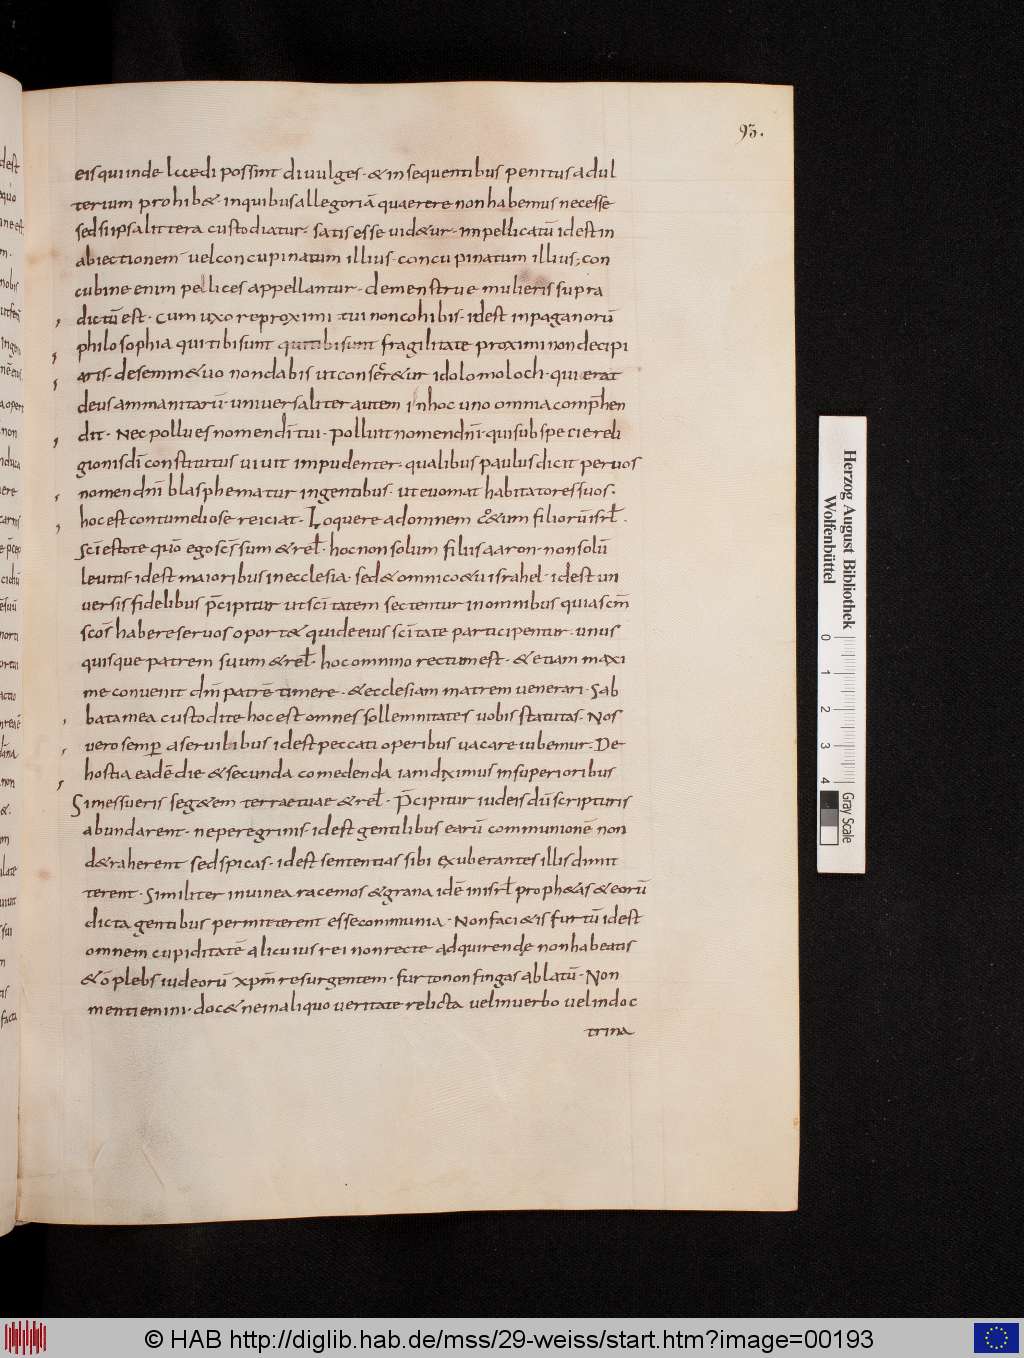 93.
eis qui inde lccedi possint divulges · & insequentibus penitus adul
terium prohib& · inquibus allegoriā quaerere non habemus necesse
sed si ipsa littera custodiatur · satis esse vid&ur · Inpellicatū idest in
abiectionem vel concupinatum illius · concupinatum illius; con
cubine enim pellices appellantur · demenstrue mulieris supra
dictū est · Cum uxore proximi tui non cohibis · idest in paganorū
philosophia qui tibi sunt qui tibi sunt fragilitate proximi non decipi
aris · de semin& uo non dabis ut conser&ur idolo moloch · qui erat
deus ammanitarū · universaliter autem in hoc uno omnia comp̄hen
dit · Nec pollues nomen dī tui · polluit nomen dnī · qui sub specie reli
gionis dī constitutus vivit impudenter · qualibus paulus dicit per vos
nomen dnī blasphematur in gentibus · ut evomat habitatores suos ·
hoc est contumeliose reiciat · Loquere ad omnem co&um filiorū isrl̄ ·
Scī estote quō ego scs̄ sum & rel̄ · hoc non solum filiis aaron · non solū
levitis · idest maioribus in ecclesia · sed & omni co&ui israhel · idest uni
versis fidelibus p̄cipitur ut scītatem sectentur in omnibus quia scm̄
scōs habere servos oport& qui de eius scītate participentur · unus
quisque patrem suum & rel̄ · hoc omnino rectum est · & etiam maxi
me convenit dnm̄ patrē timere · & ecclesiam matrem venerari · Sab
bata mea custodite hoc est omnes sollemnitates vobis statutas · Nos
vero semp̱ a servilibus idest peccati operibus vacare iubemur · De
hostia eadē die & secunda comedenda iam diximus in superioribus
Si messueris seg&em terrae tuae & rel̄ · P̄cipitur iudeis dū scripturis
abundarent · ne peregrinis · idest gentilibus earū communionē non
d&raherent sed spicas · idest sententias sibi exuberantes illis dimit
terent · Similiter in vinea racemos & grana idē in isrl̄ proph&as & eorū
dicta gentibus permitterent esse communia · Non faci&is furtū idest
omnem cupiditatē alicuius rei non recte adquirende non habeatis
& ō plebs iudeorū xpm̄ resurgentem · furto non fingas ablatū · Non
mentiemini · doc& ne in aliquo veritate relicta vel in verbo vel in doc
trina
Herzog August Bibliothek
Wolfenbüttel
0 1 2 3 4
Gray Scale
© HAB http://diglib.hab.de/mss/29-weiss/start.htm?image=00193